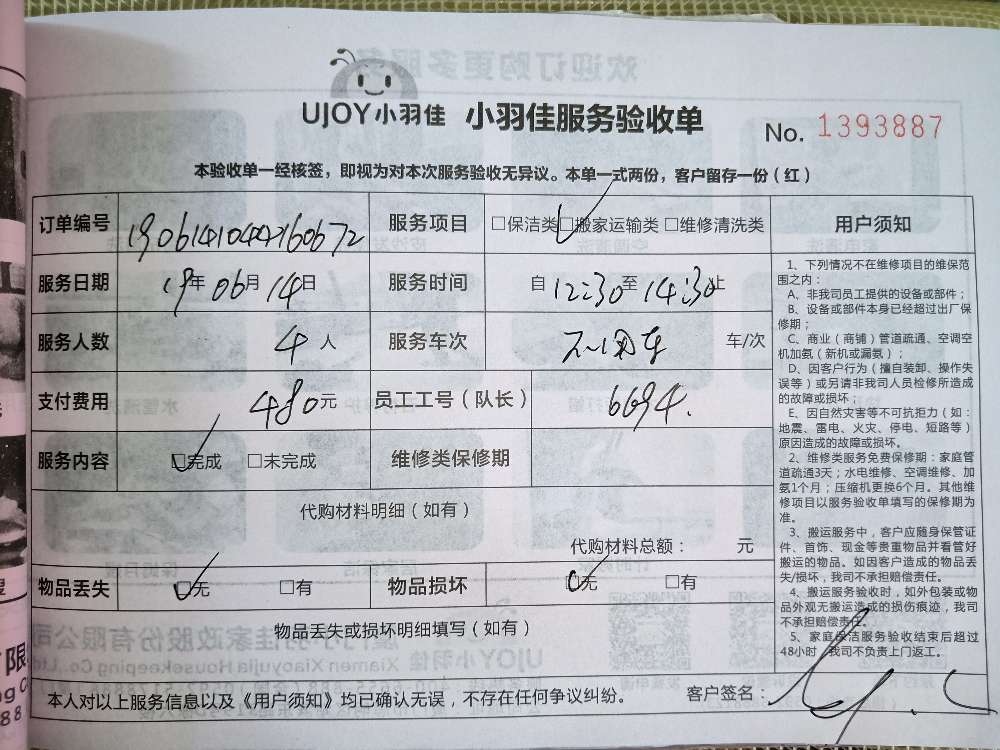 UJOY小羽佳 小羽佳服务验收单 No. 1393887
本验收单一经核签，即视为对本次服务验收无异议。本单一式两份，客户留存一份（红）
订单编号 190614104416067 2 服务项目 □保洁类 □搬家运输类 □维修清洗类
服务日期 19年06月14日 服务时间 自12:30至14:30止
服务人数 4人 服务车次 车/次
支付费用 480元 员工工号（队长） 6694.
服务内容 □完成 □未完成 维修类保修期
代购材料明细（如有）
代购材料总额： 元
物品丢失 □无 □有 物品损坏 □无 □有
物品丢失或损坏明细填写（如有）
本人对以上服务信息以及《用户须知》均已确认无误，不存在任何争议纠纷。 客户签名：
用户须知
1、下列情况不在维修项目的维保范
围之内：
A、非我司员工提供的设备或部件；
B、设备或部件本身已经超过出厂保
修期；
C、商业（商铺）管道疏通、空调空
机加氨（新机或漏氨）；
D、因客户行为（擅自装卸、操作失
误等）或另请非我司人员检修所造成
的故障或损坏；
E、因自然灾害等不可抗拒力（如：
地震、雷电、火灾、停电、短路等）
原因造成的故障或损坏。
2、维修类服务免费保修期：家庭管
道疏通3天；水电维修、空调维修、加
氨1个月；压缩机更换6个月。其他维
修项目以服务验收单填写的保修期为
准。
3、搬运服务中，客户应随身保管证
件、首饰、现金等贵重物品并看管好
搬运的物品。如因客户造成的物品丢
失/损坏，我司不承担赔偿责任。
4、搬运服务验收时，如外包装或物
品外观无搬运造成的损伤痕迹，我司
不承担赔偿责任。
5、家庭保洁服务验收结束后超过
48小时，我司不负责上门返工。